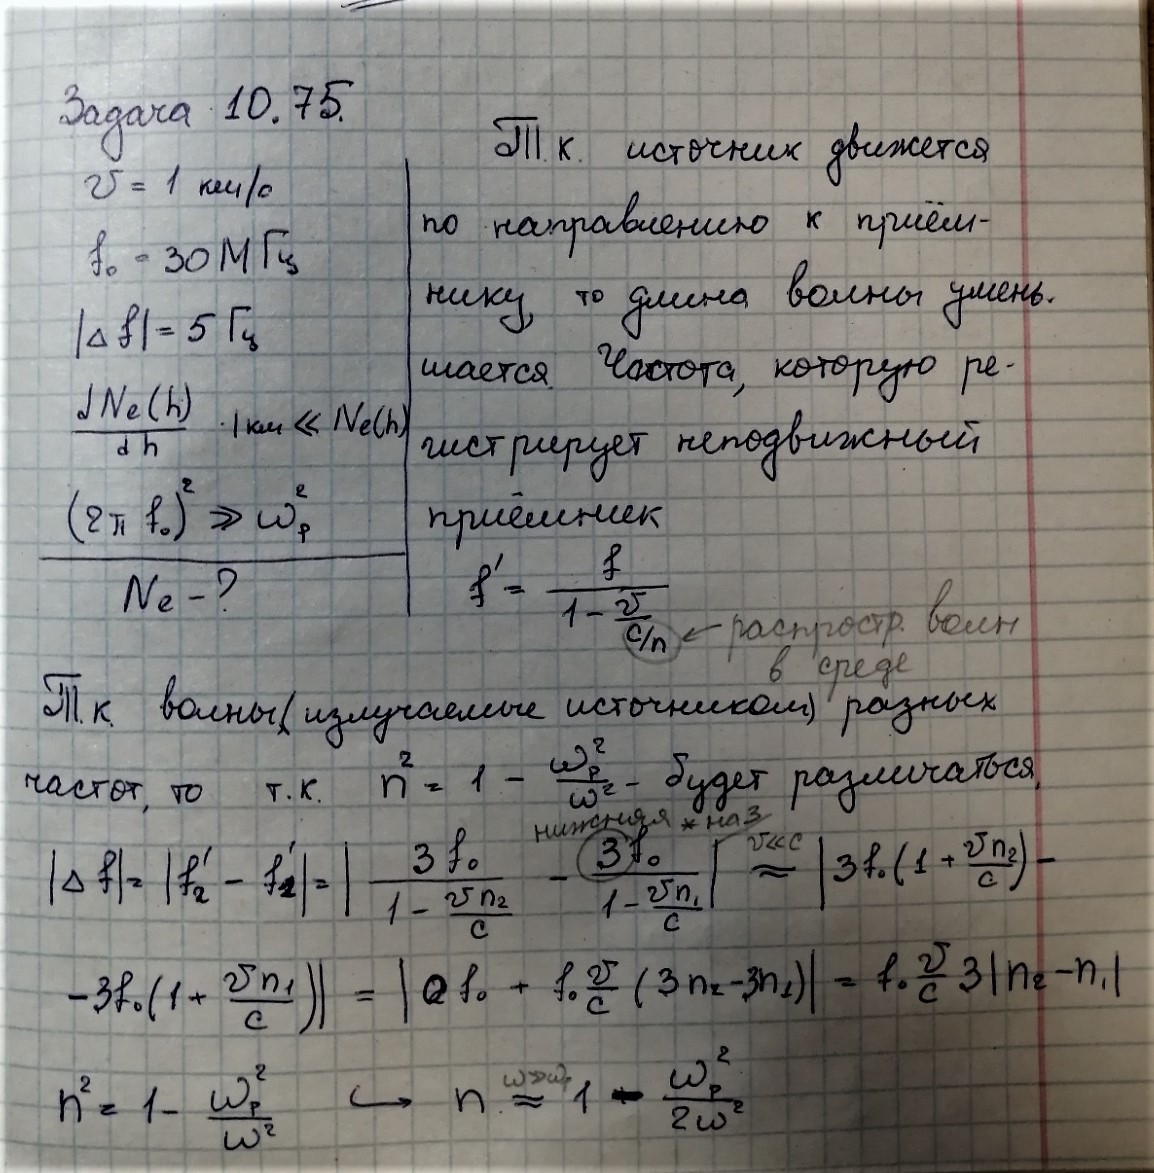 Задача 10.75.
v = 1 км/с
f₀ = 30 МГц
|Δf| = 5 Гц
dNe(h)/dh · 1км ≪ Ne(h)
(2π f₀)² ≫ ωp²
Ne - ?
Т.к. источник движется
по направлению к приём-
нику, то длина волны умень-
шается. Частота, которую ре-
гистрирует неподвижный
приёмник
f' = f / (1 - v/(c/n)) ← распростр. волн
в среде
Т.к. волны (излучаемые источником) разных
частот, то т.к. n² = 1 - ωp²/ω² - будет различаться,
нижняя * на 3
|Δf| = |f₂' - f₁'| = | 3f₀/(1 - vn₂/c) - 3f₀/(1 - vn₁/c) | v≪c ≈ |3f₀(1 + vn₂/c) -
- 3f₀(1 + vn₁/c)| = |0f₀ + f₀ v/c (3n₂ - 3n₁)| = f₀ v/c 3|n₂ - n₁|
n² = 1 - ωp²/ω² ↪ n ω≫ωp ≈ 1 - ωp²/2ω²